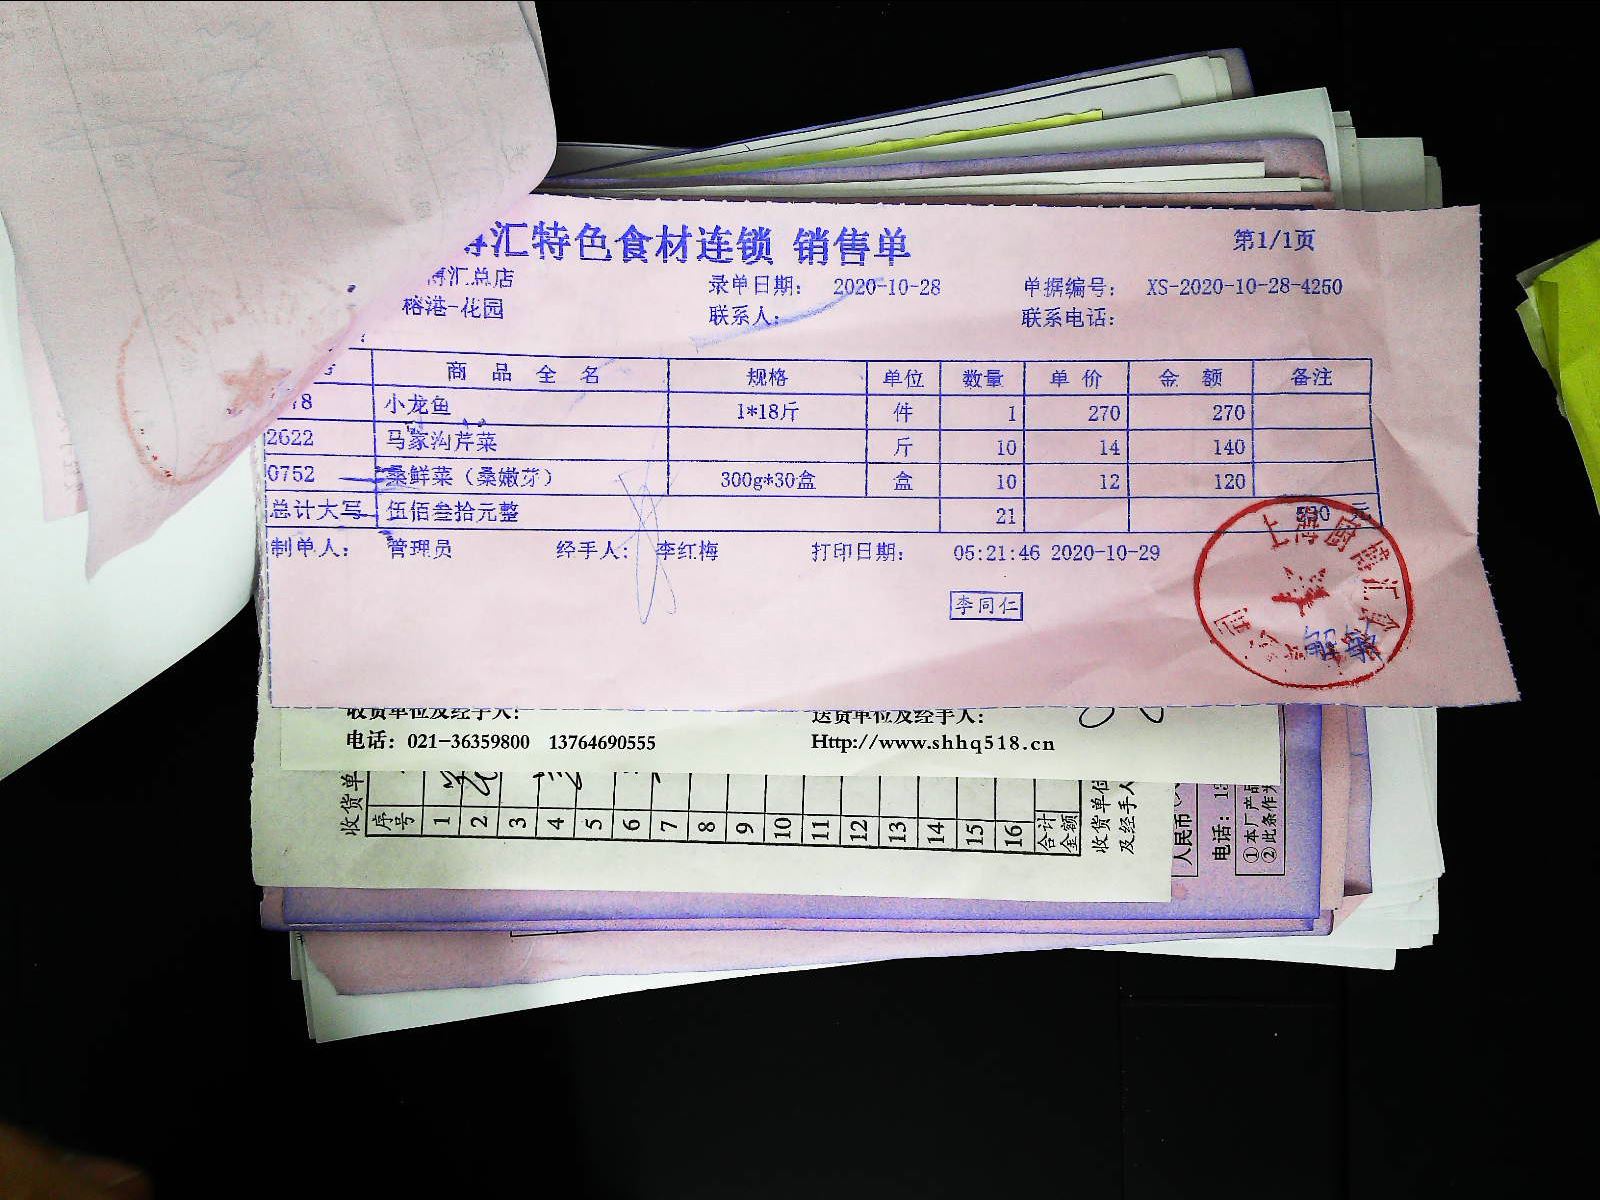 汇特色食材连锁 销售单 第1/1页
博汇总店 录单日期: 2020-10-28 单据编号: XS-2020-10-28-4250
榕港-花园 联系人: 联系电话:
商 品 全 名 规格 单位 数量 单 价 金 额 备注
小龙鱼 1*18斤 件 1 270 270
2622 马家沟芹菜 斤 10 14 140
0752 桑鲜菜（桑嫩芽） 300g*30盒 盒 10 12 120
总计大写 伍佰叁拾元整 21 530
制单人: 管理员 经手人: 李红梅 打印日期: 05:21:46 2020-10-29
李同仁
上海厨博汇食
公司
收货单位及经手人: 送货单位及经手人:
电话: 021-36359800 13764690555 Http://www.shhq518.cn
收货单
序号 1 2 3 4 5 6 7 8 9 10 11 12 13 14 15 16 合计金额
收货单位
及经手人
人民币
电话: 
①本厂产品
②此条作为